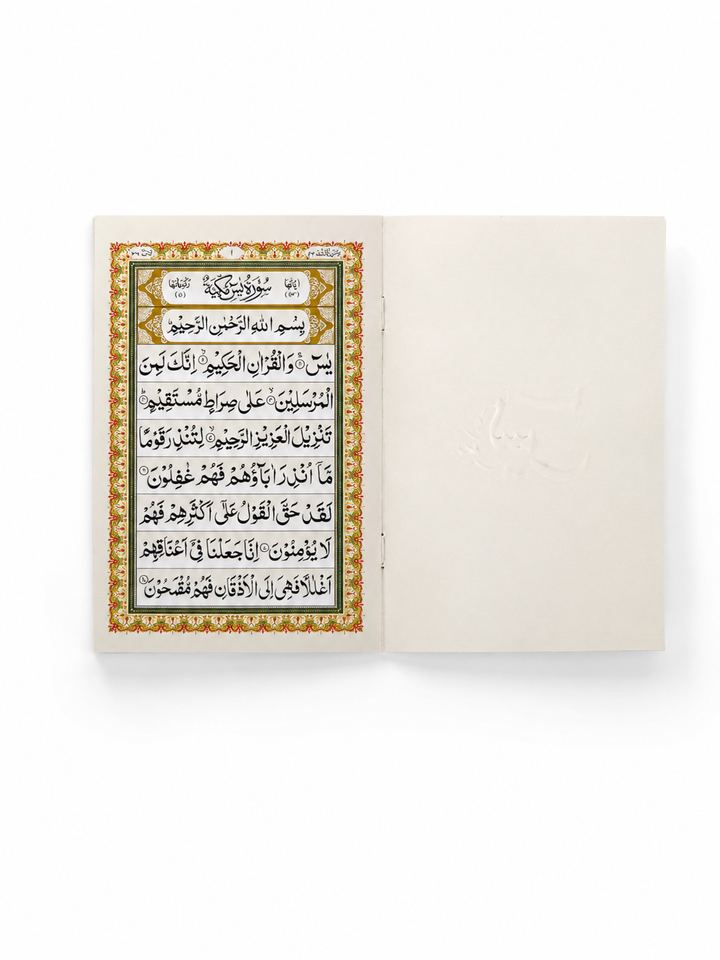 ١
اٰيَاتُهَا سُوْرَةُ يٰسٓ مَكِّيَّةٌ رُكُوْعَاتُهَا
(٨٣) (٥)
بِسْمِ اللهِ الرَّحْمٰنِ الرَّحِيْمِ
يٰسٓ ۝ وَالْقُرْاٰنِ الْحَكِيْمِ ۝ اِنَّكَ لَمِنَ
الْمُرْسَلِيْنَ ۝ عَلٰى صِرَاطٍ مُّسْتَقِيْمٍ ۝
تَنْزِيْلَ الْعَزِيْزِ الرَّحِيْمِ ۝ لِتُنْذِرَ قَوْمًا
مَّآ اُنْذِرَ اٰبَآؤُهُمْ فَهُمْ غٰفِلُوْنَ ۝
لَقَدْ حَقَّ الْقَوْلُ عَلٰٓى اَكْثَرِهِمْ فَهُمْ
لَا يُؤْمِنُوْنَ ۝ اِنَّا جَعَلْنَا فِيْٓ اَعْنَاقِهِمْ
اَغْلٰلًا فَهِيَ اِلَى الْاَذْقَانِ فَهُمْ مُّقْمَحُوْنَ ۝